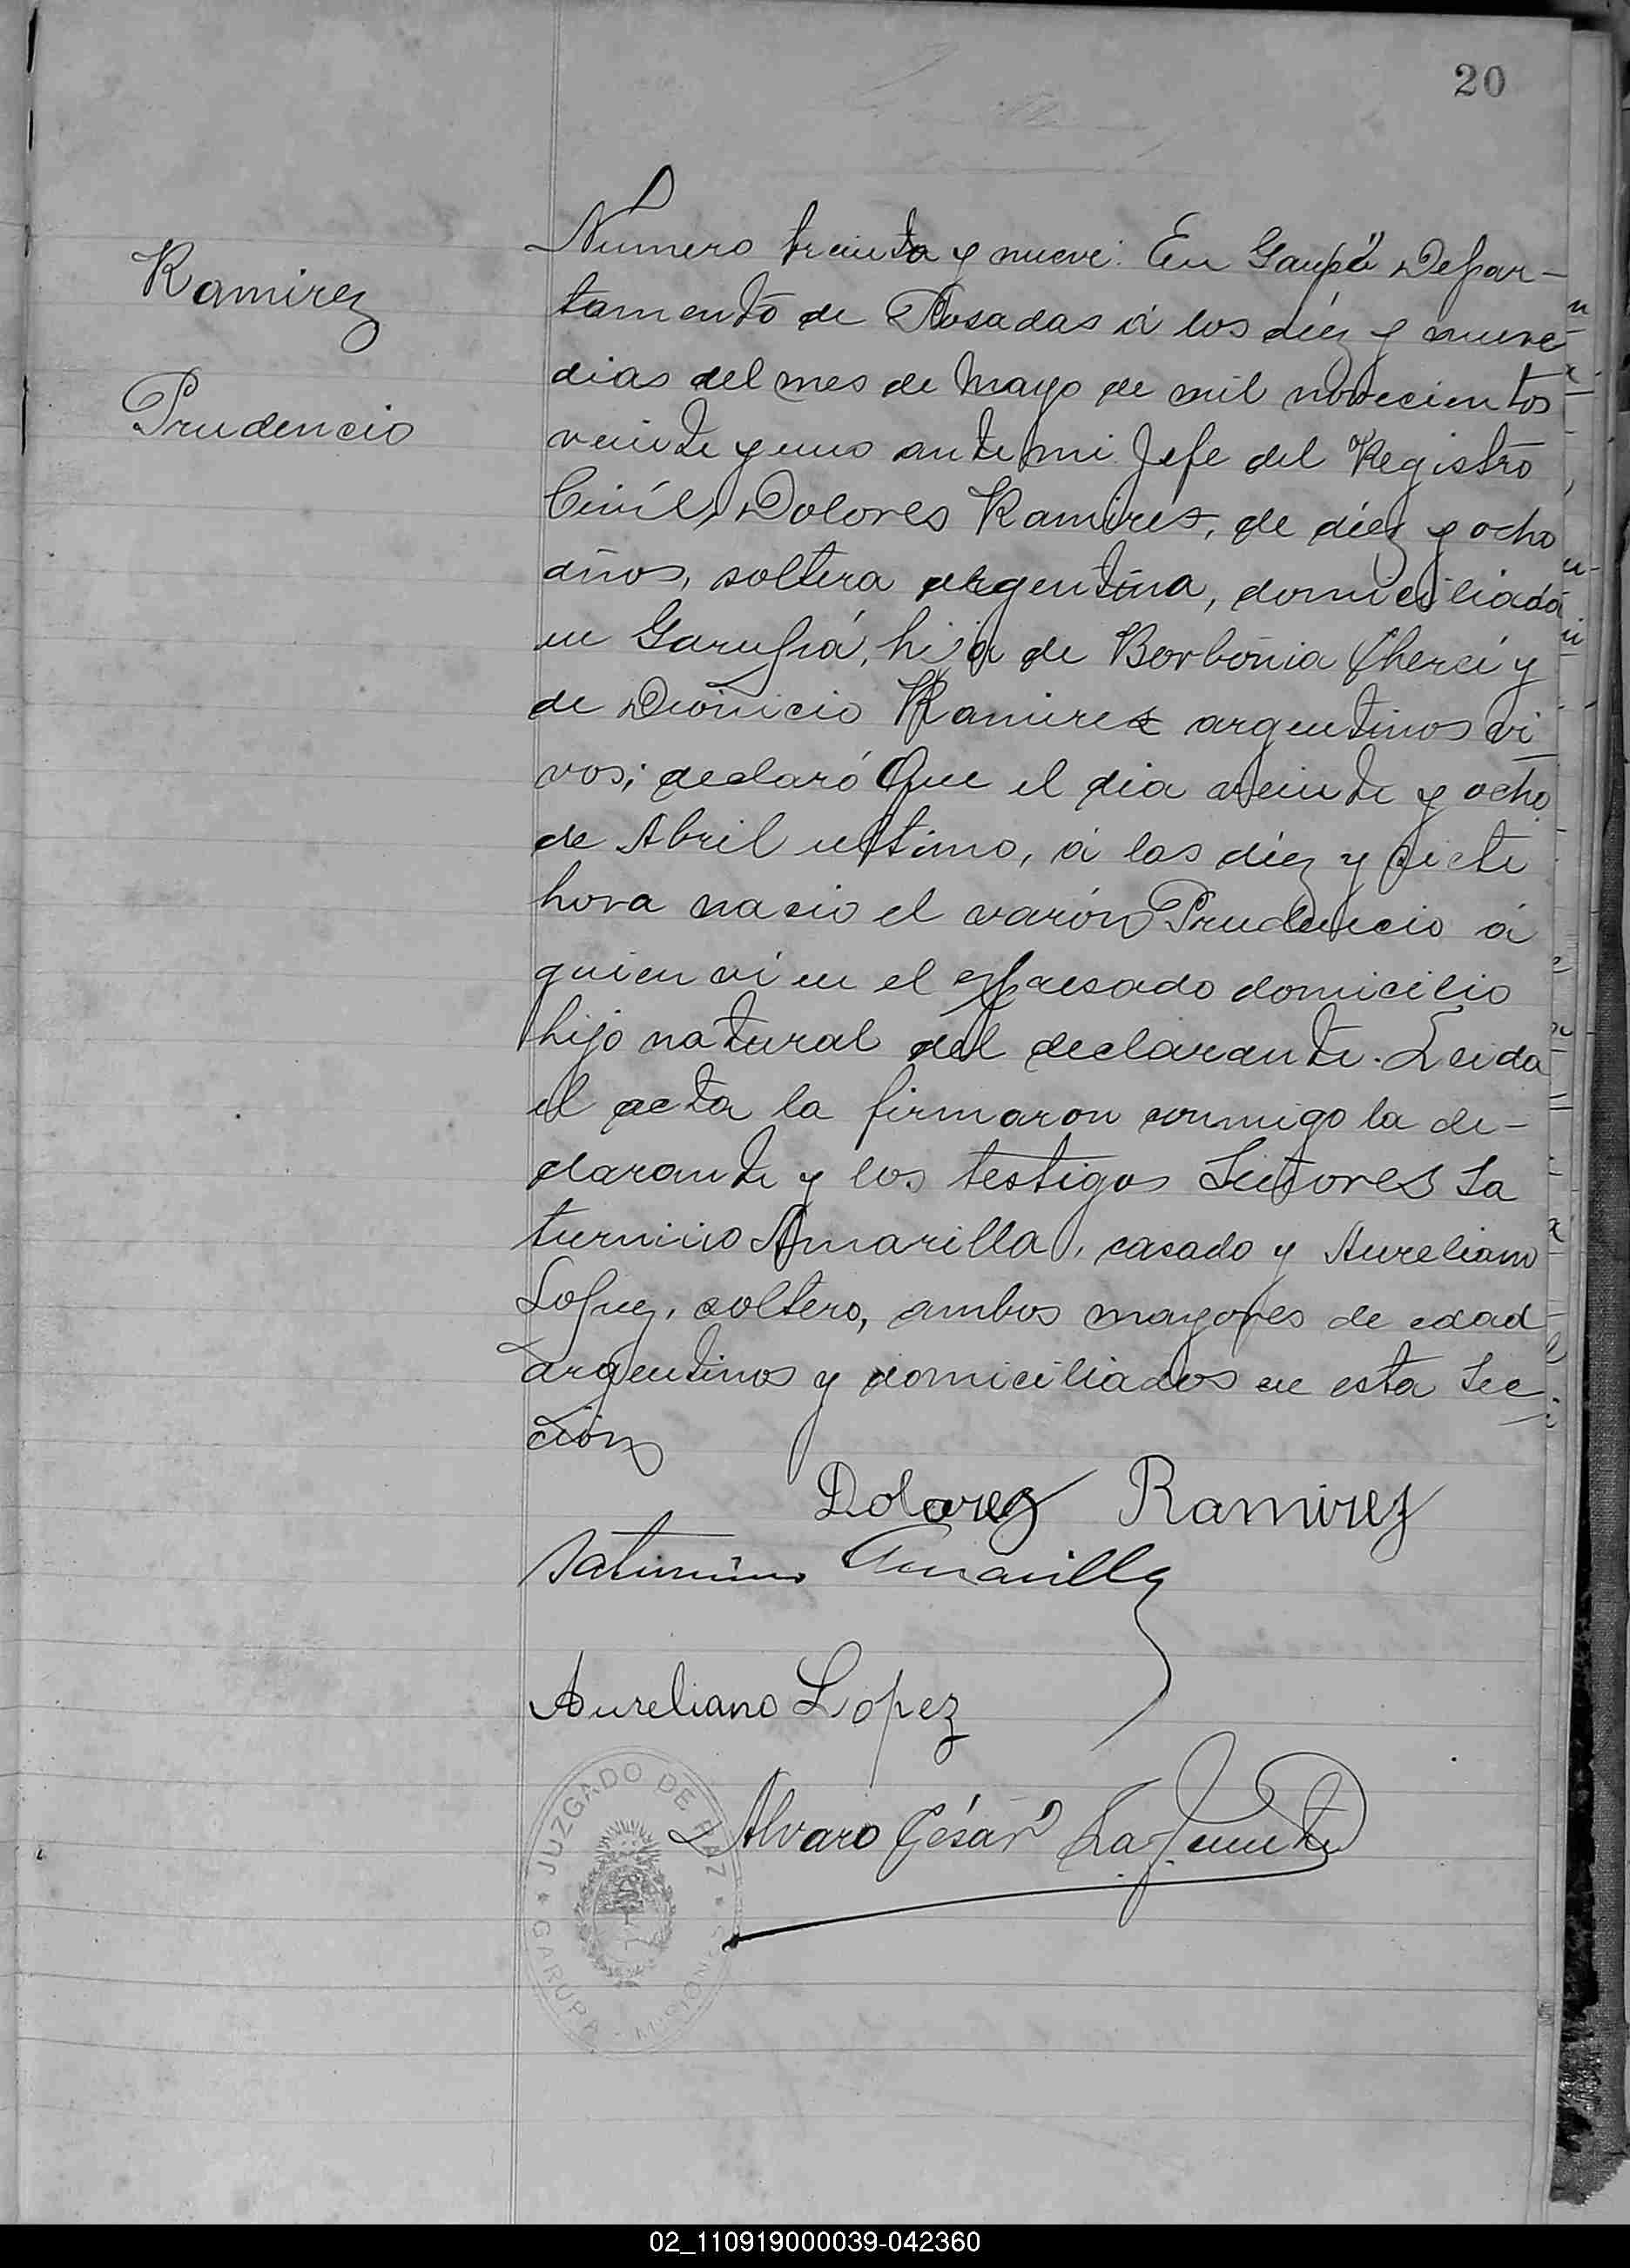 20
Ramirez
Prudencio
Número treinta y nueve: En Garupá Depar-
tamento de Posadas á los diez y nueve
dias del mes de Mayo de mil novecientos
veinte y uno ante mi Jefe del Registro
Civíl, Dolores Ramires, de diez y ocho
años, soltera argentina, domiciliada
en Garupá, hija de Borbonia y
de Dionicio Ramirez argentinos vi
vos; declaró Que el dia veinte y ocho
de Abril ultimo, á las diez y siete
hora nacio el varón Prudencio á
quien ví en el expresado domicilio
hijo natural del declarante. Leida
el acta la firmaron conmigo la de-
clarante y los testigos Señores Sa
turnino Amarilla, casado y Aureliano
Lopez, soltero, ambos mayores de edad
argentinos y domiciliados en esta Sec
ción
Dolorez Ramirez
Saturnino Amarilla
Aureliano Lopez
Alvaro César Lafuente
JUZGADO DE PAZ
GARUPA - MISIONES
02_110919000039-042360